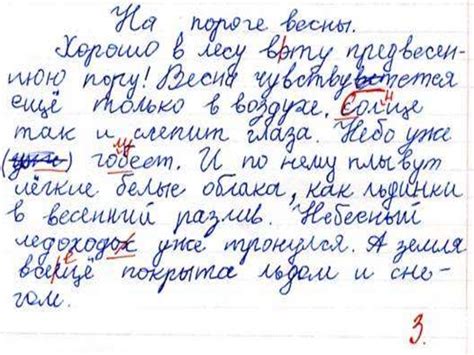 На пороге весны.
Хорошо в лесу в эту предвесен-
нюю пору! Весна чувствуется
ещё только в воздухе. Солнце
так и слепит глаза. Небо уже
голубеет. И по нему плывут
лёгкие белые облака, как льдинки
в весенний разлив. Небесный
ледоход уже тронулся. А земля
всё ещё покрыта льдом и сне-
гом.
3.